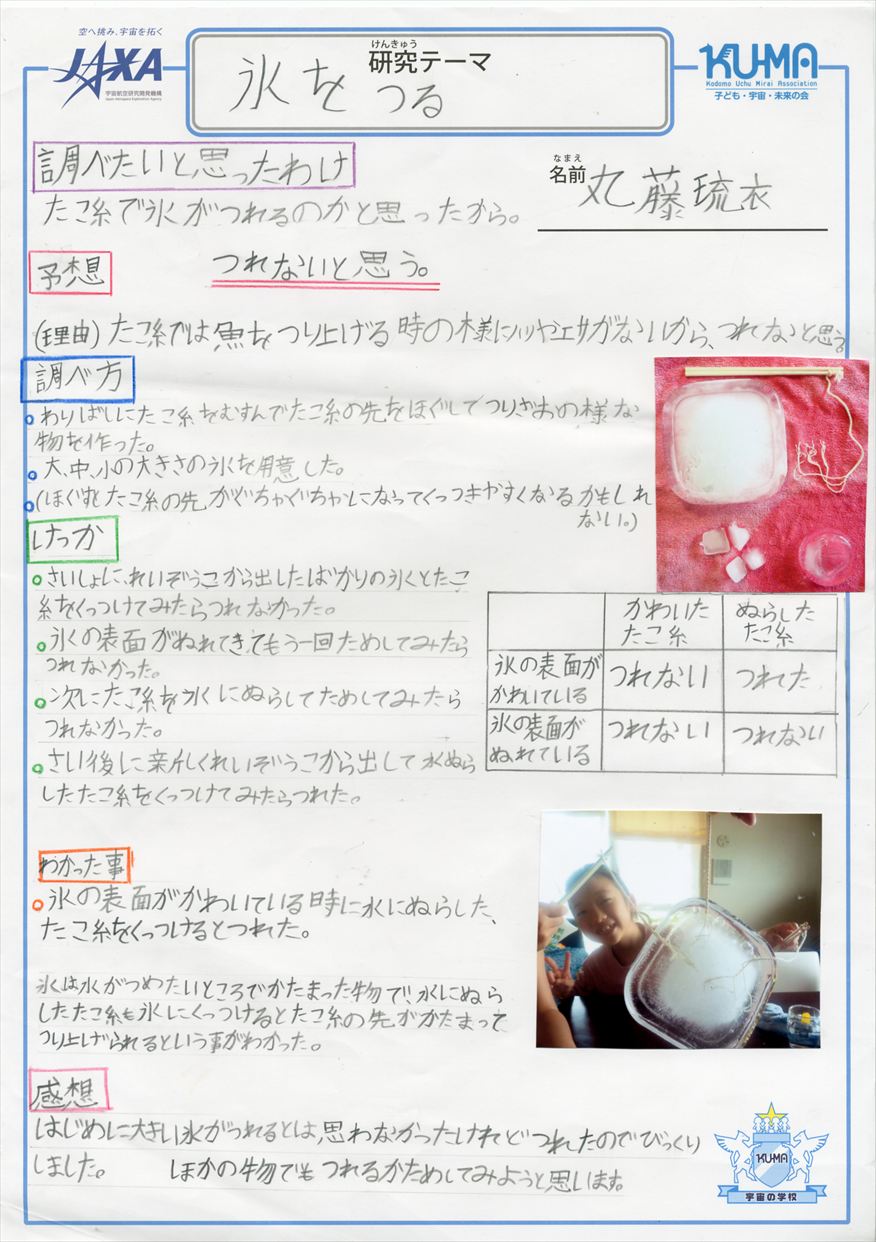 空へ挑み、宇宙を拓く
JAXA
宇宙航空研究開発機構
Japan Aerospace Exploration Agency
けんきゅう
研究テーマ
氷をつる
KU-MA
Kodomo Uchu Mirai Association
子ども・宇宙・未来の会
調べたいと思ったわけ
なまえ
名前 丸藤琉衣
たこ糸で氷がつれるのかと思ったから。
予想 つれないと思う。
(理由)たこ糸では魚をつり上げる時の様にハリやエサがないから、つれないと思う。
調べ方
わりばしにたこ糸をむすんでたこ糸の先をほぐしてつりざおの様な
物を作った。
大、中、小の大きさの氷を用意した。
(ほぐすとたこ糸の先がぐちゃぐちゃになってくっつきやすくなるかもしれ
ない。)
けっか
さいしょに、れいぞうこから出したばかりの氷とたこ
糸をくっつけてみたらつれなかった。
氷の表面がぬれてきてもう一回ためしてみたら
つれなかった。
次にたこ糸を氷にぬらしてためしてみたら
つれなかった。
さい後に新しくれいぞうこから出して水ぬら
したたこ糸をくっつけてみたらつれた。
かわいた
たこ糸
ぬらした
たこ糸
氷の表面が
かわいている
つれない
つれた
氷の表面が
ぬれている
つれない
つれない
わかった事
氷の表面がかわいている時に水にぬらした、
たこ糸をくっつけるとつれた。
氷は水がつめたいところでかたまった物で、水にぬら
したたこ糸も氷にくっつけるとたこ糸の先がかたまって
つり上げられるという事がわかった。
感想
はじめに大きい氷がつれるとは思わなかったけれどつれたのでびっくり
しました。 ほかの物でもつれるかためしてみようと思います。
KU-MA
宇宙の学校